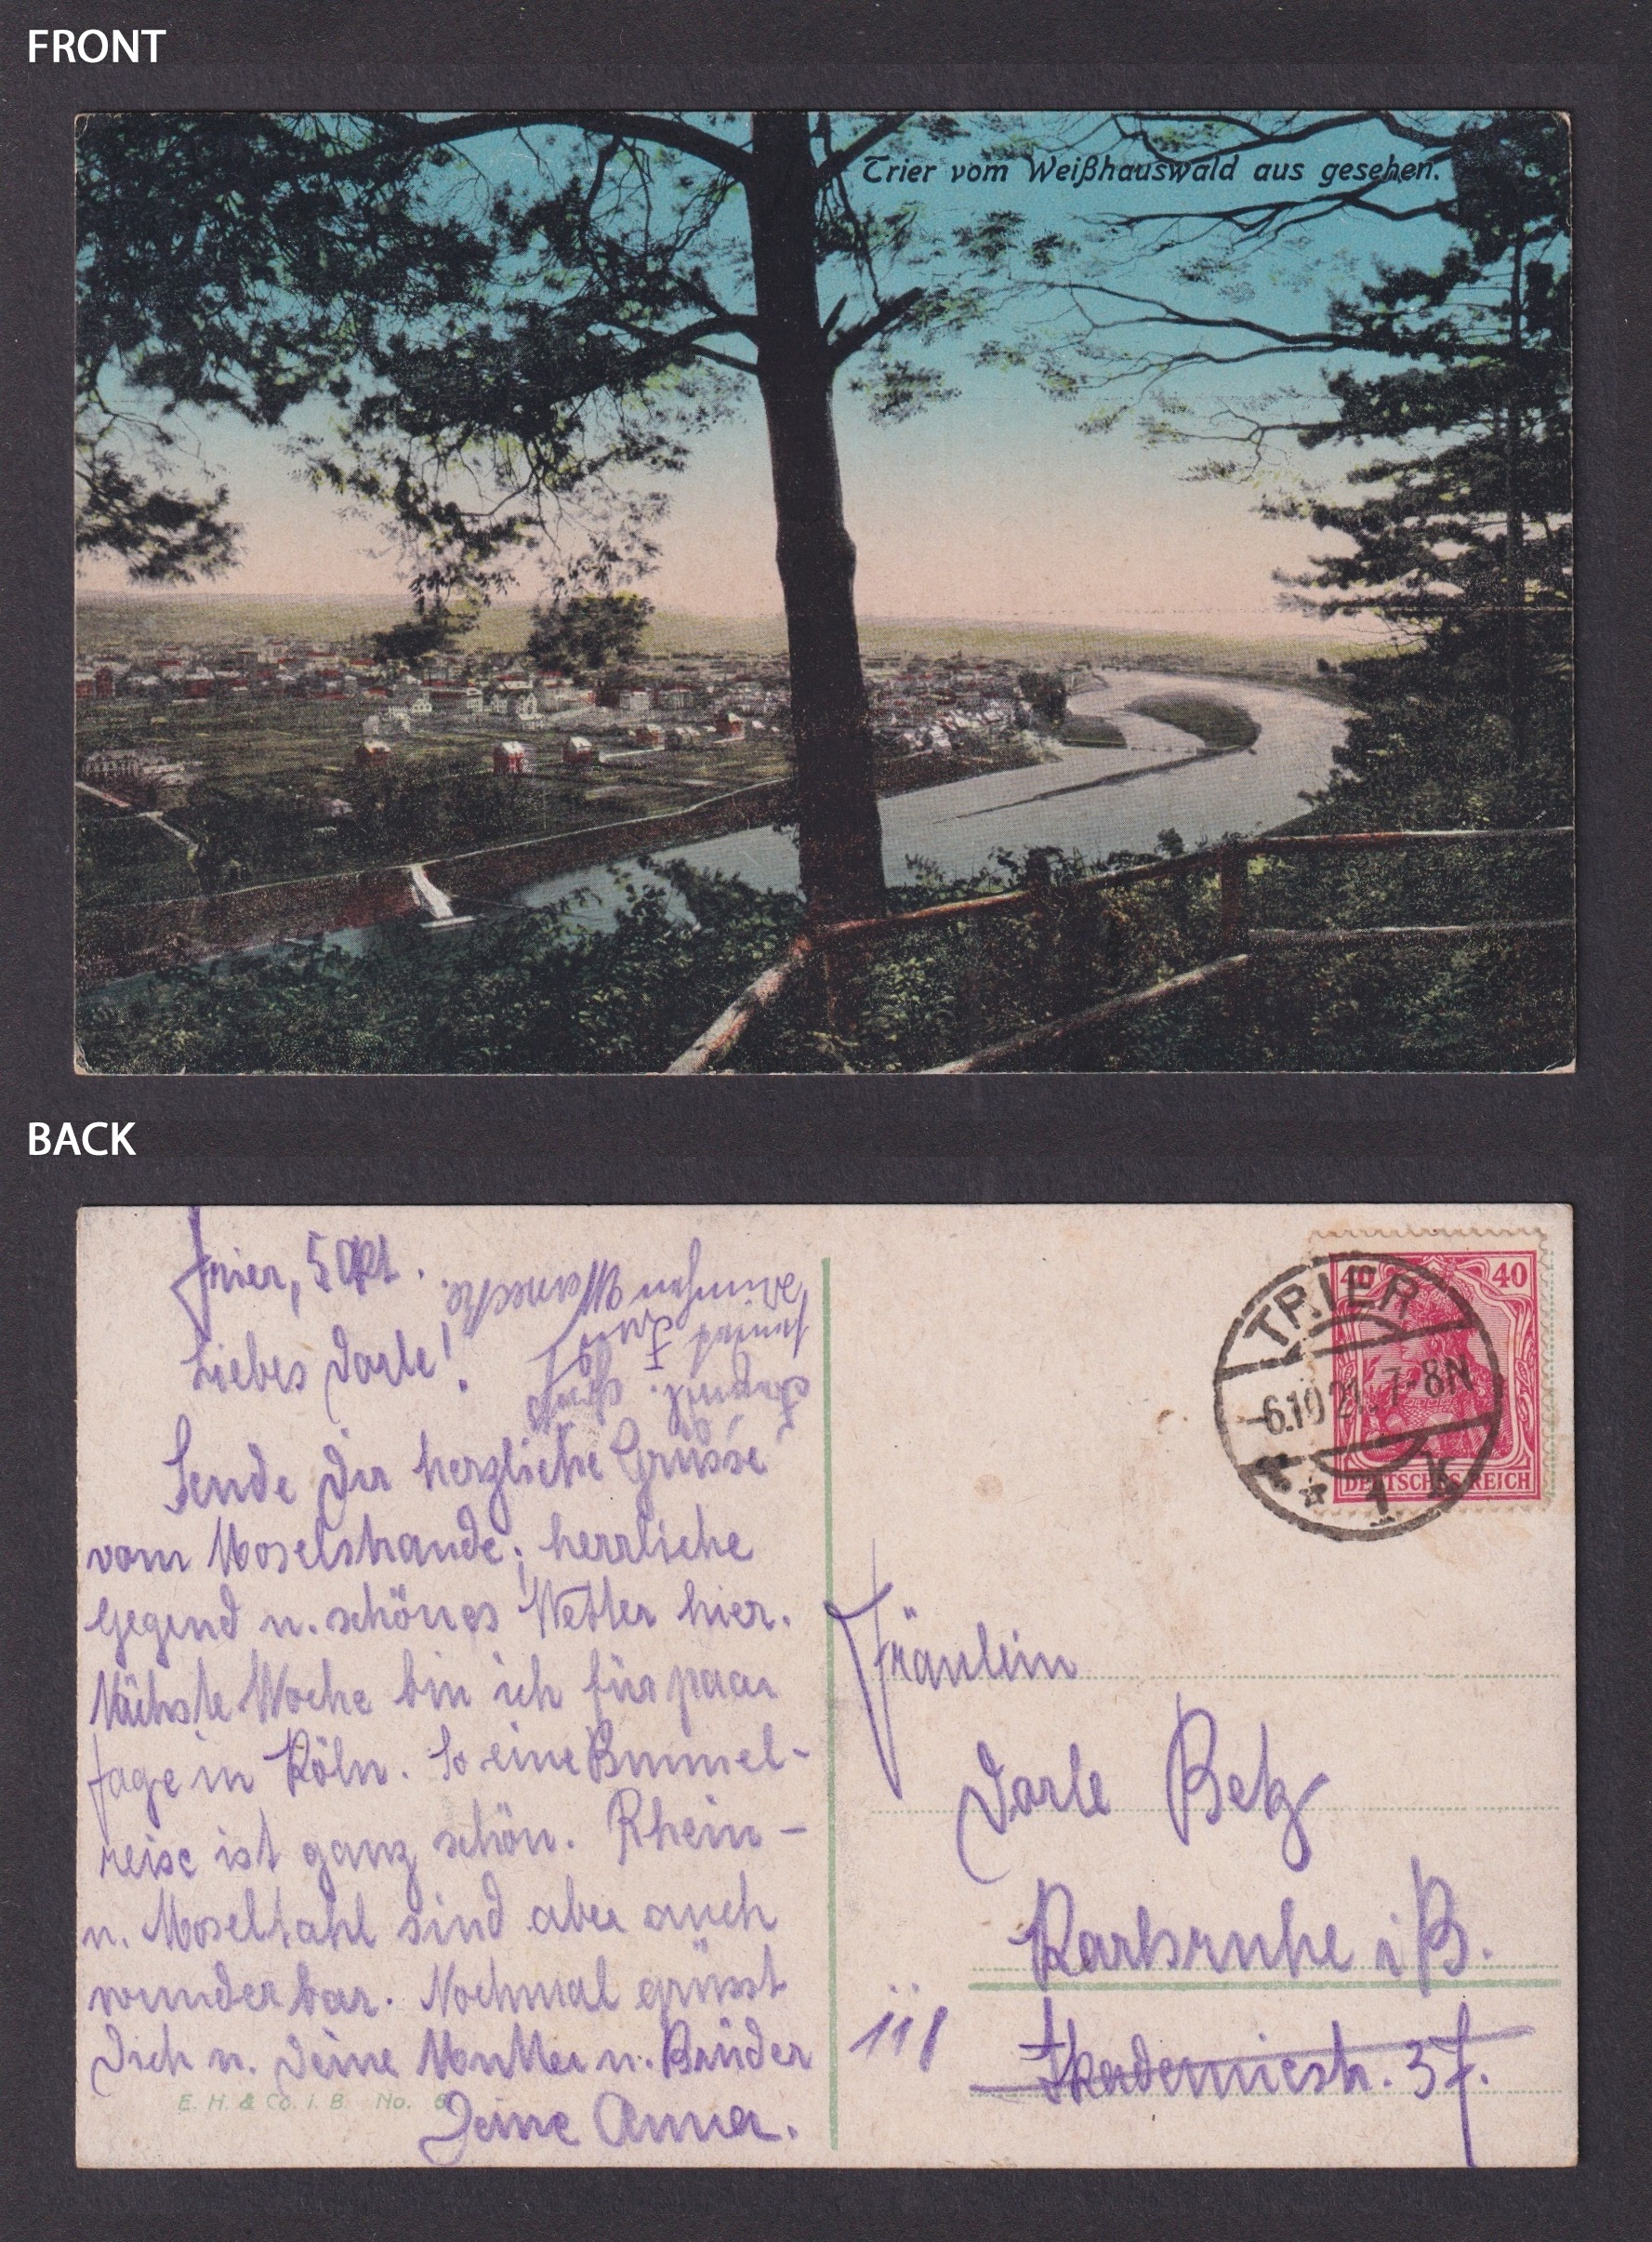 FRONT
Trier vom Weißhauswald aus gesehen.
BACK
Trier, 5 Okt.
Liebes Darle!
Sende Dir herzliche Grüsse
vom Moselstrande; herrliche
Gegend u. schönes Wetter hier.
Nächste Woche bin ich für paar
Tage in Köln. So eine Bummel-
reise ist ganz schön. Rhein-
u. Moseltahl sind aber auch
wunderbar. Nochmal grüsst
Dich u. Deine Mutter u. Brüder
Deine Anna.
E. H. & Co. i. B. No. 6
TRIER
-6.10.21. 7-8N
* * 1 k
40 40
DEUTSCHES REICH
Fräulein
Darle Betz
Karlsruhe i B.
Akademiestr. 37.